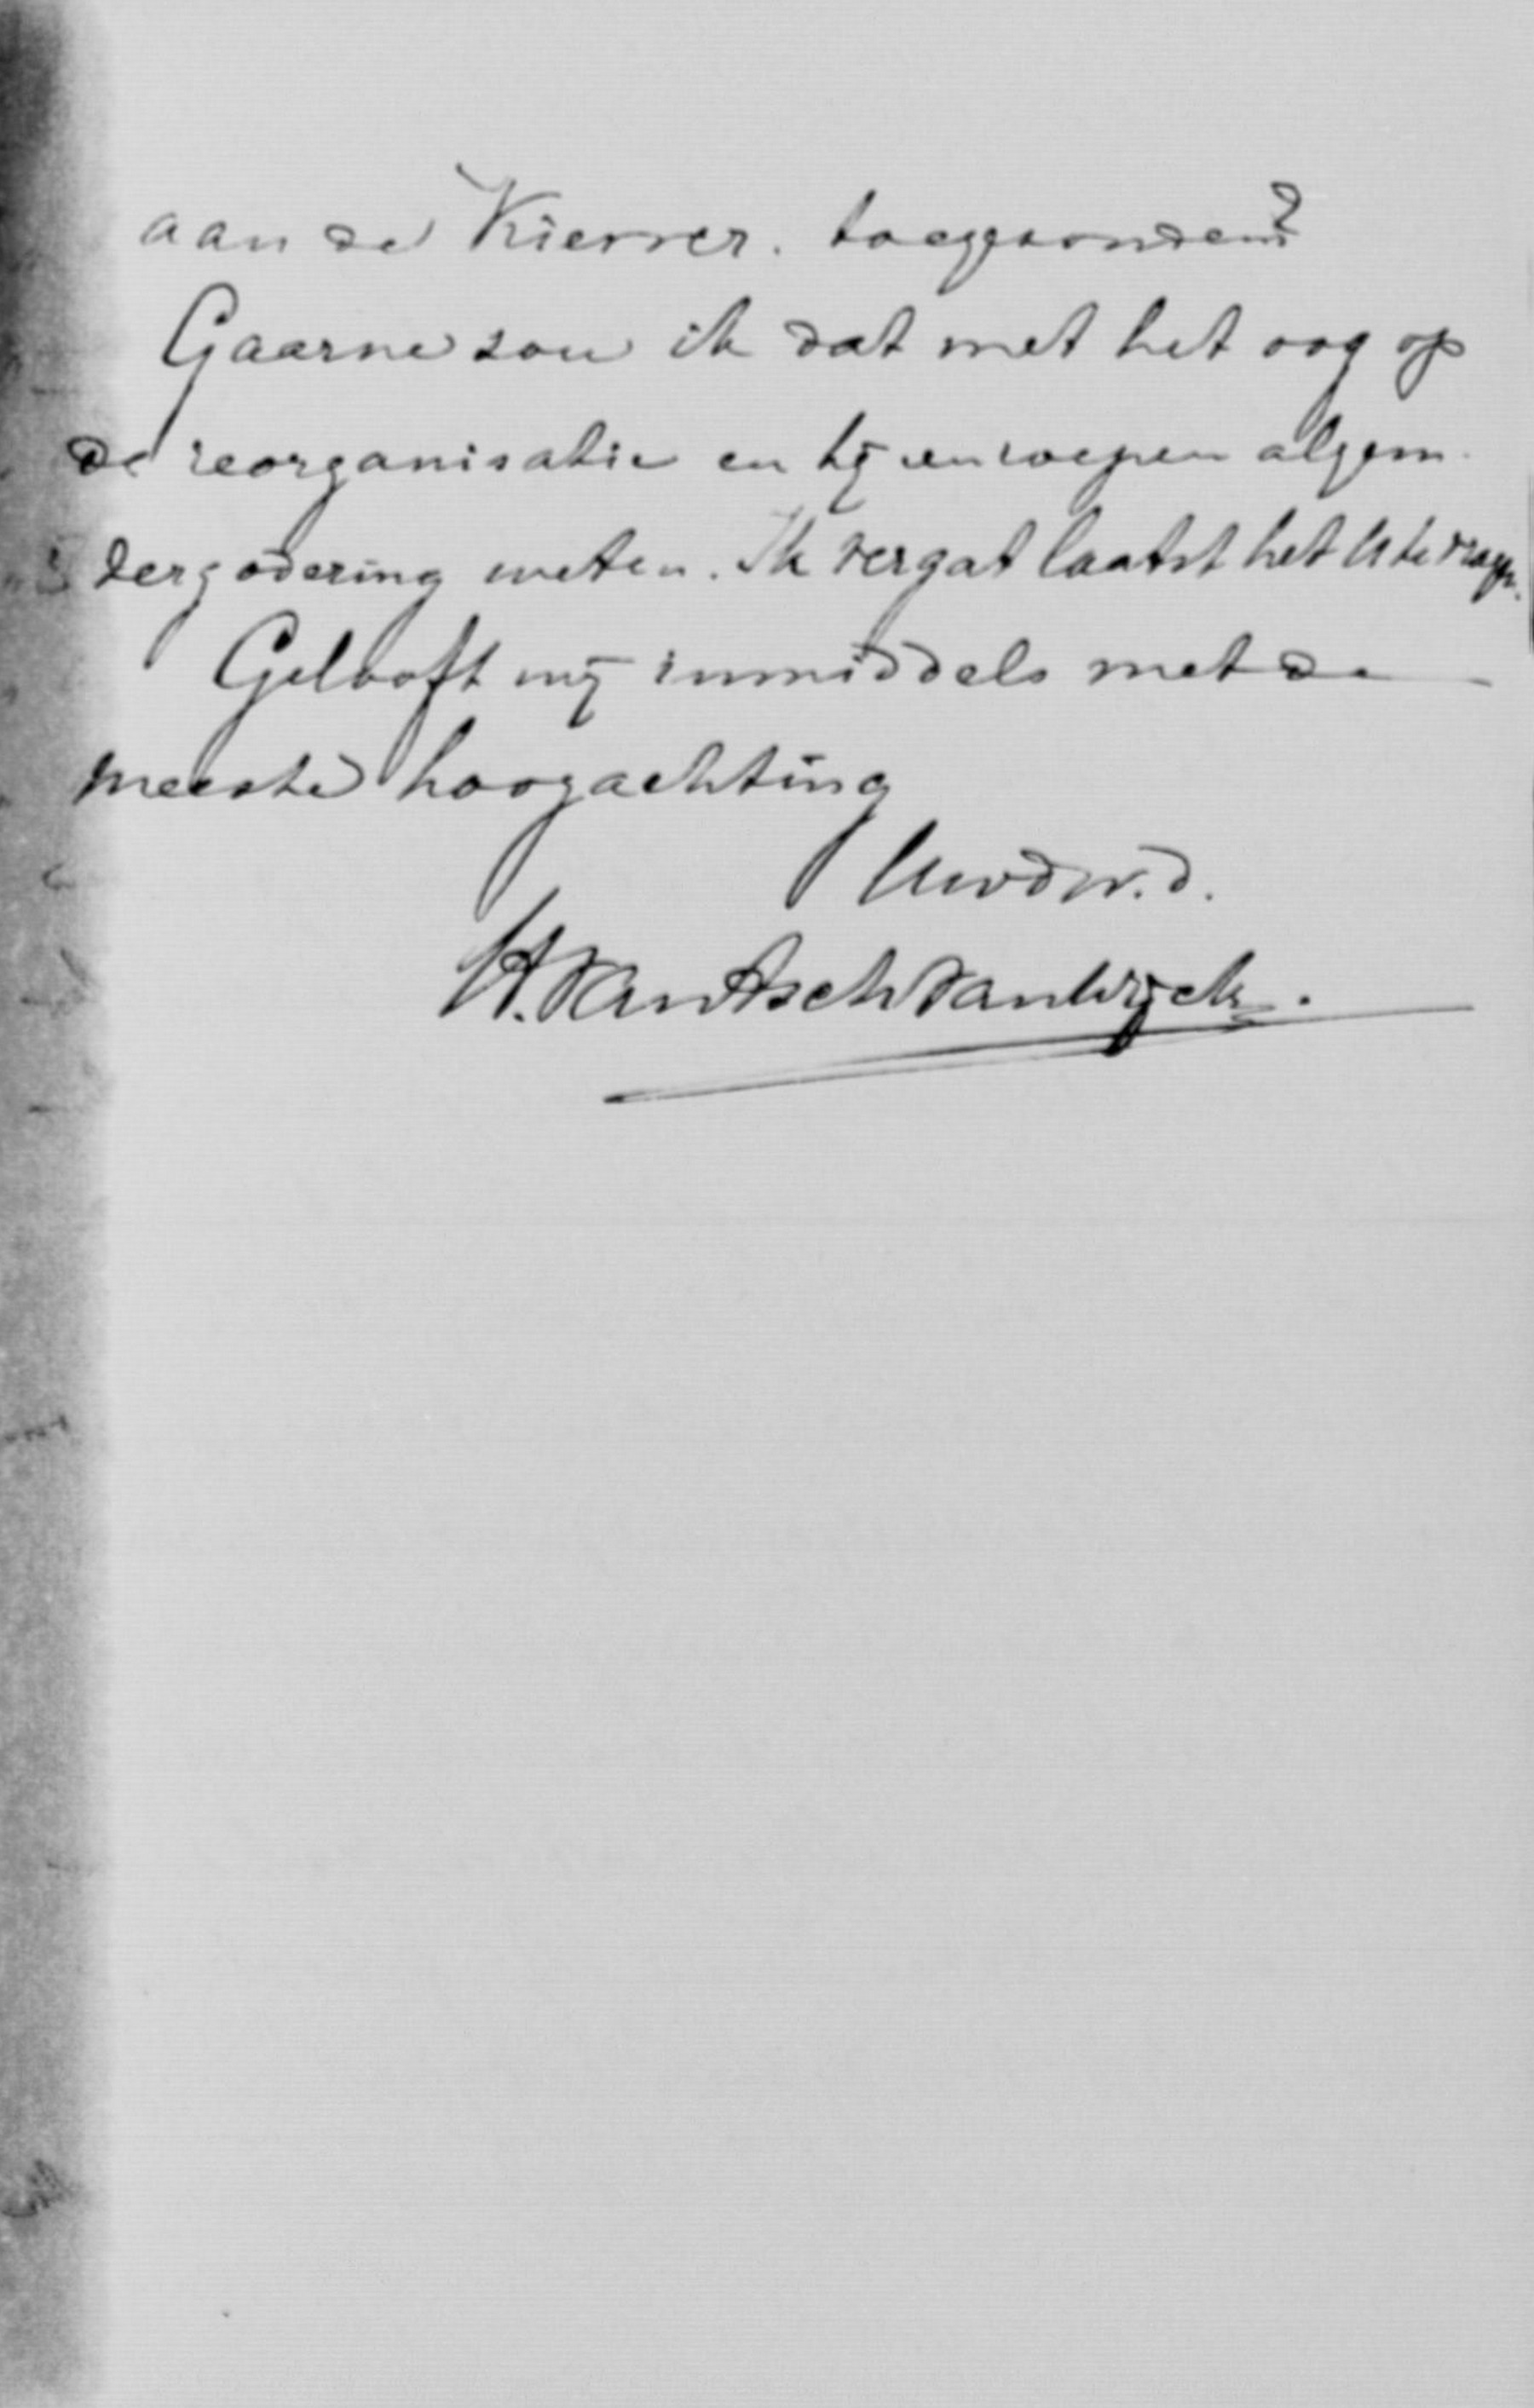 aan de Kiesver. toegezonden?
Gaarne zou ik dat met het oog op
de reorganisatie en bijeenroepen algem.
vergadering weten. Ik vergat laatst het U te vragen.
Gelooft mij inmiddels met de
meeste hoogachting
Uwdw.d.
H. van Asch van Wijck.